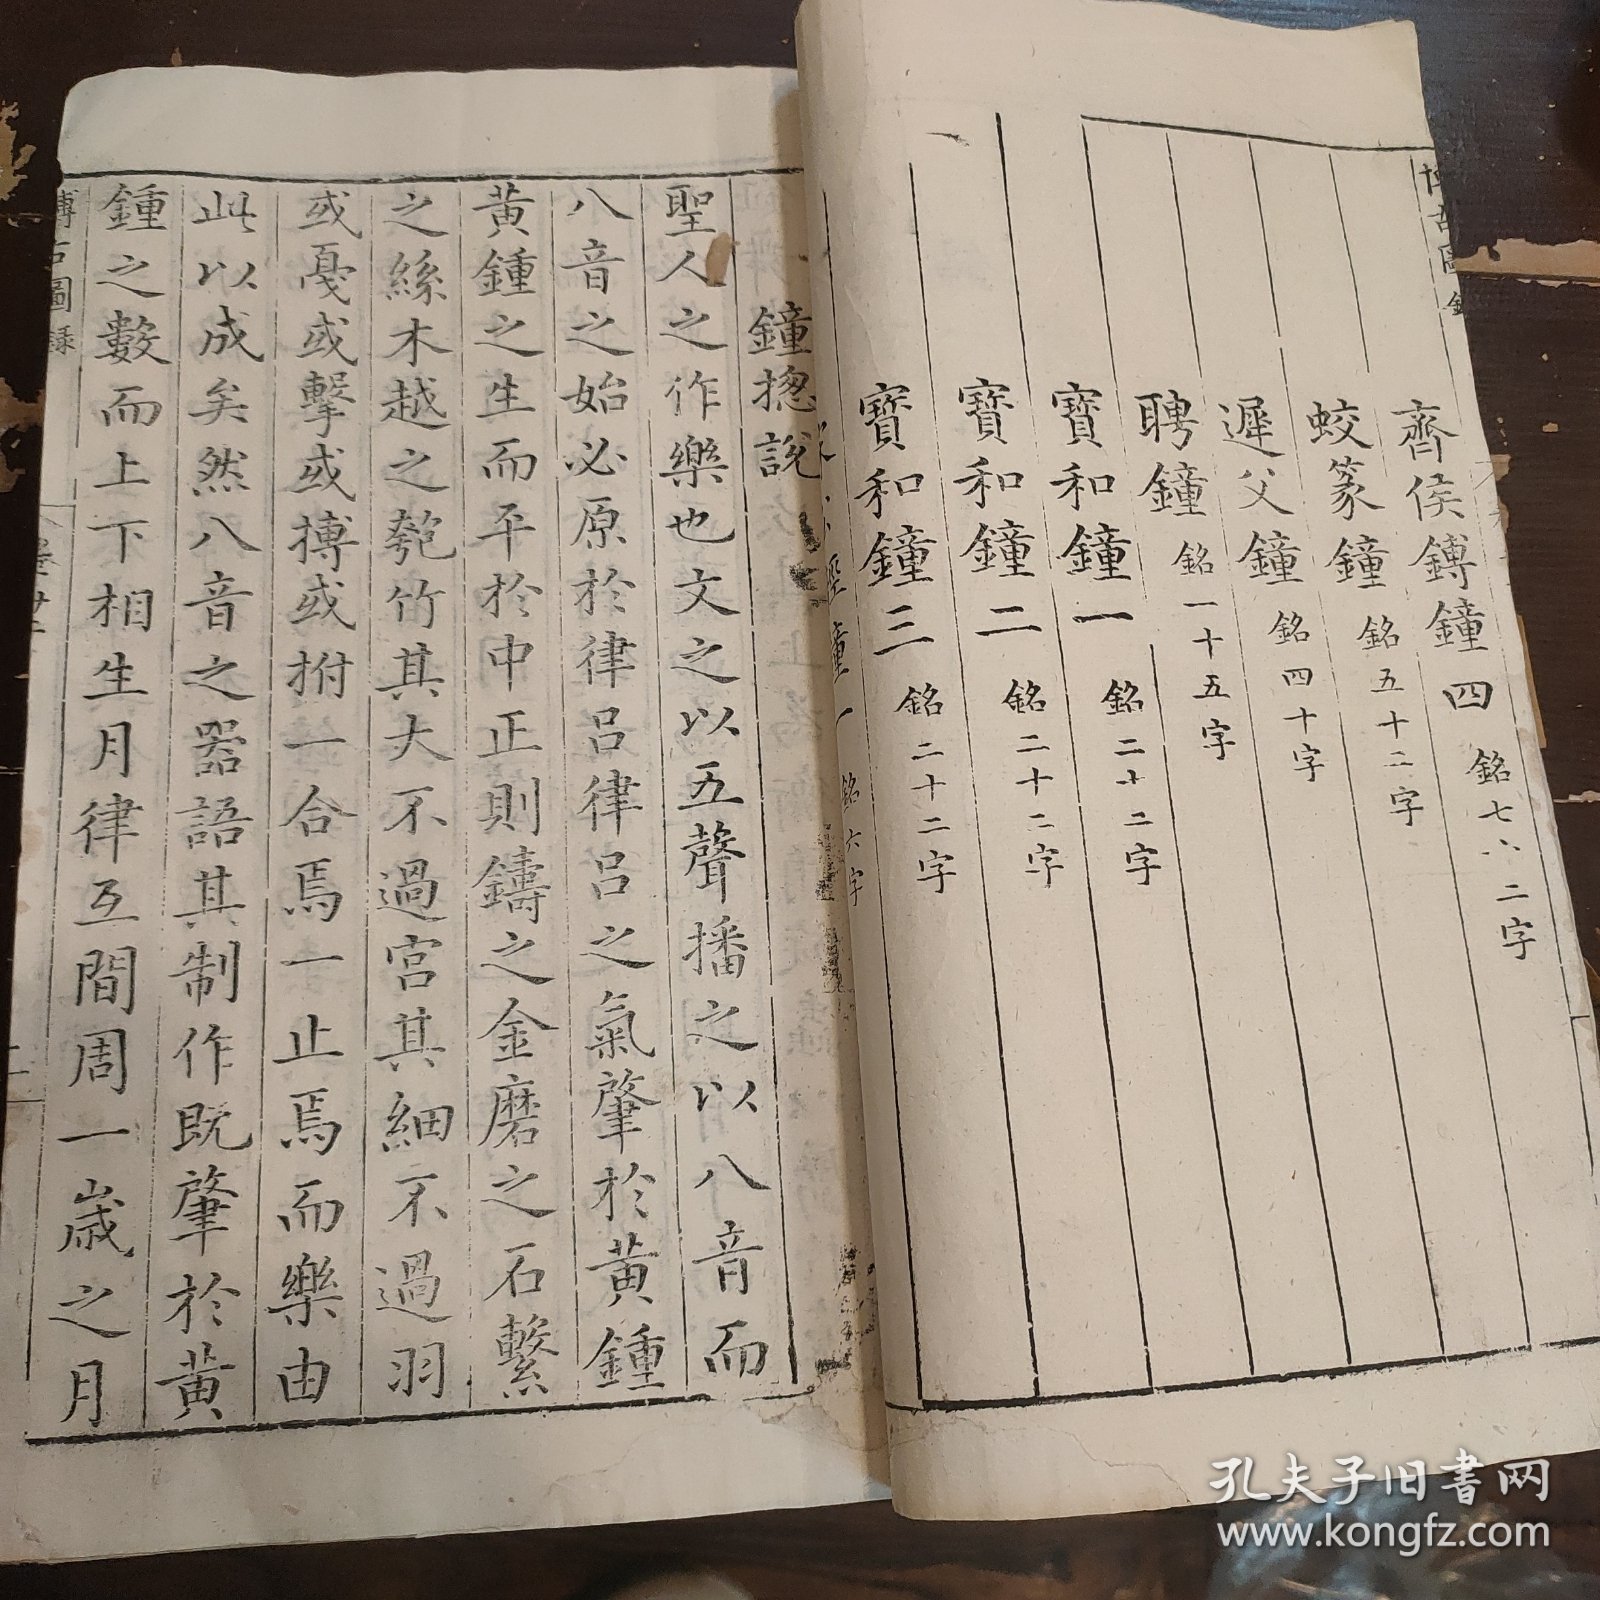 齊侯鎛鐘四 銘七六二字
蛟篆鐘 銘五十二字
遲父鐘 銘四十字
聘鐘 銘一十五字
寶和鐘一 銘二十二字
寶和鐘二 銘二十二字
寶和鐘三 銘二十二字
銘六字
鐘揔說
聖人之作樂也文之以五聲播之以八音而
八音之始必原於律呂律呂之氣肇於黃鍾
黃鍾之生而平於中正則鑄之金磨之石繫
之絲木越之匏竹其大不過宮其細不過羽
或戞或擊或搏或拊一合焉一止焉而樂由
此以成矣然八音之器語其制作既肇於黃
鍾之數而上下相生月律互間周一歲之月
博古圖錄
孔夫子旧书网
www.kongfz.com